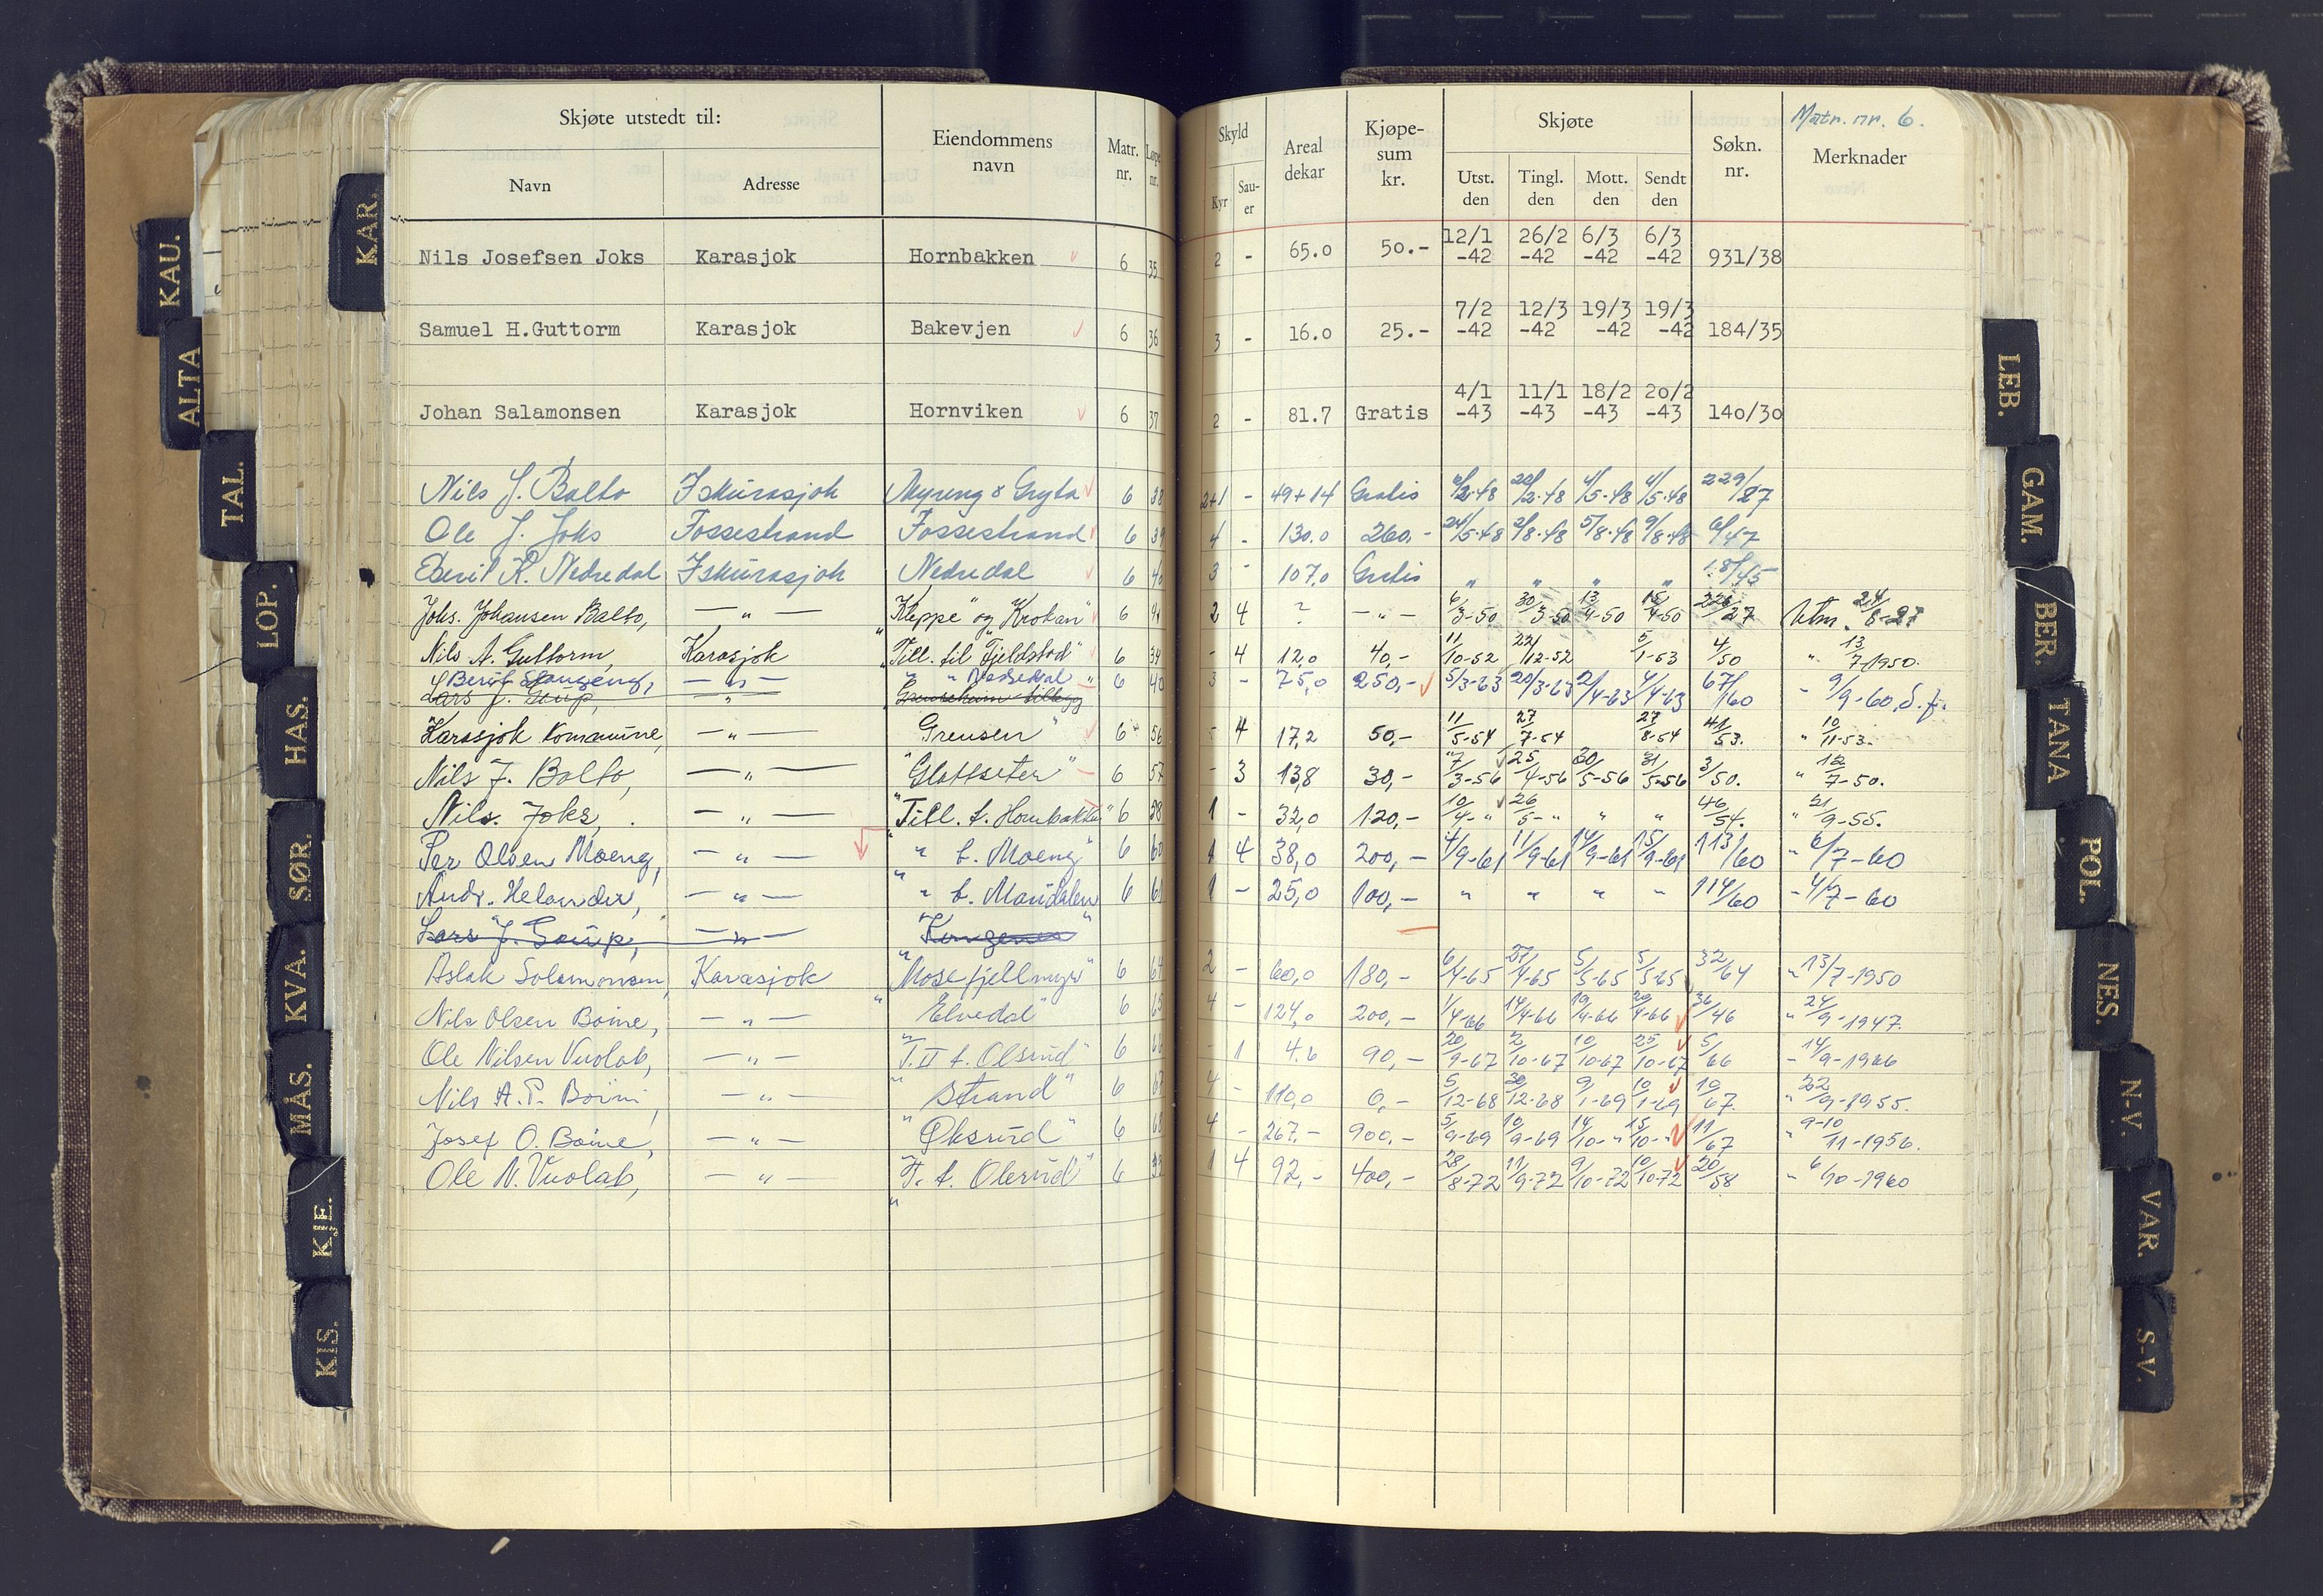 Skjøte utstedt til: Eiendommens navn Matr. nr. Løpe nr. Skyld Areal dekar Kjøpe- sum kr. Skjøte Søkn. nr. Matr. nr. 6.
Navn Adresse Kyr Sau- er Utst. den Tingl. den Mott. den Sendt den Merknader
Nils Josefsen Joks Karasjok Hornbakken 6 35 2 - 65.0 50.- 12/1 -42 26/2 -42 6/3 -42 6/3 -42 931/38
Samuel H.Guttorm Karasjok Bakevjen 6 36 3 - 16.0 25.- 7/2 -42 12/3 -42 19/3 -42 19/3 -42 184/35
Johan Salamonsen Karasjok Hornviken 6 37 2 - 81.7 Gratis 4/1 -43 11/1 -43 18/2 -43 20/2 -43 140/30
Nils J. Balto Iskurasjok Myreng & Gryta 6 38 2+1 - 49+14 Gratis /2-48 /2-48 4/5-48 4/5-48 229/27
Ole J. Joks Fossestrand Fossestrand 6 39 4 - 130.0 260.- 24/5-48 2/8-48 5/8-48 9/8-48 6/47
Berit K. Nedredal Iskurasjok Nedredal 6 40 3 - 107,0 Gratis " " " " 18/45
Johs. Johansen Balto, — " — "Kleppe" og Krokan" 6 41 2 4 ? — " — 6/3-50 30/3-50 13/4-50 15/4-50 226/27 Utm. 24/8-27
Nils A. Guttorm, Karasjok "Till. til "Fjeldstad" 6 54 - 4 12,0 40,- 11/10-52 22/12-52 5/1-53 4/50 " 13/7 1950.
Berit Slangeng, — " — " " Nedredal " 6 40 3 - 75,0 250,- 5/3-63 20/3-63 2/4-63 4/4-63 67/60 - 9/9-60
Lars J. Gaup, "
Karasjok kommune, — " — Grensen" 6 56 - 4 17,2 50,- 11/5-54 27/7-54 27/8-54 41/53. " 10/11-53.
Nils J. Balto, — " — "Glattseter" 6 57 - 3 13,8 30,- 7/3-56 25/4-56 30/5-56 31/5-56 3/50. " 12/7-50.
Nils. Joks, — " — "Till. t. Hornbakken" 6 58 1 - 32,0 120,- 10/4-" 26/5-" " " 46/54. " 21/9-55.
Per Olsen Moeng, — " — " " t. Moeng" 6 60 1 4 38,0 200,- 4/9-61 11/9-61 14/9-61 15/9-61 113/60 - 6/7-60
Andr. Helander, — " — " " t. Mandalen 6 61 1 - 25,0 100,- " " " " 114/60 - 4/7-60
Lars J. Gaup, — " —
Aslak Solomonsen, Karasjok "Mosefjellmyr" 6 64 2 - 60,0 180,- 6/4-65 27/4-65 5/5-65 5/5-65 32/64 " 13/7-1950
Nils Olsen Boine, — " — " Elvedal" 6 65 4 - 124,0 200,- 1/4-66 14/4-66 19/4-66 20/4-66 36/46 " 24/9-1947.
Ole Nilsen Vuolab, — " — "T. II t. Olsrud" 6 66 - 1 4.6 90,- 20/9-67 2/10-67 10/10-67 25/10-67 5/66 - 14/9-1966
Nils A. P. Boini, — " — " Strand" 6 67 4 - 110,0 0,- 5/12-68 30/12-68 9/1-69 10/1-69 19/67. " 22/9-1955.
Josef O. Boine, — " — " Øksrud" 6 68 4 - 267,- 900,- 5/9-69 10/9-69 14/10-" 15/10-" 11/67 " 9-10/11-1956.
Ole N. Vuolab, — " — "T. t. Olsrud" 6 1 4 92,- 400,- 28/8-72 11/9-72 9/10-72 10/10-72 20/58 - 6/10-1960
KAR.
KAU.
ALTA
TAL.
LOP.
HAS.
SØR.
KVA.
MÅS.
KJE.
KIS.
LEB.
GAM.
BER.
TANA
POL.
NES.
N-V.
VAR.
S-V.